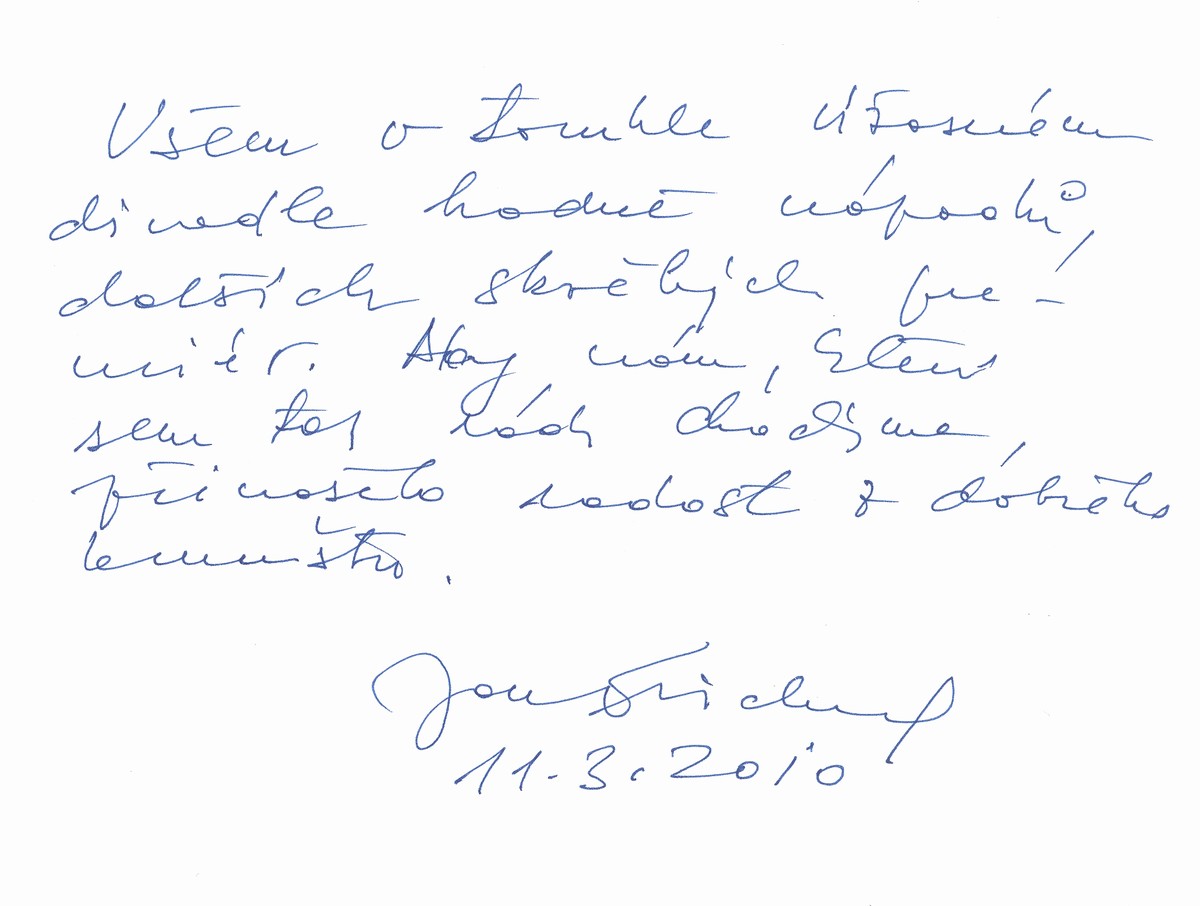 Všem v tomhle úžasném
divadle hodně nápadů,
dalších skvělých pre-
miér. Aby nám, kteří
sem tak rádi chodíme,
přinášelo radost z dobrého
kumštu.
Jan
11.3.2010